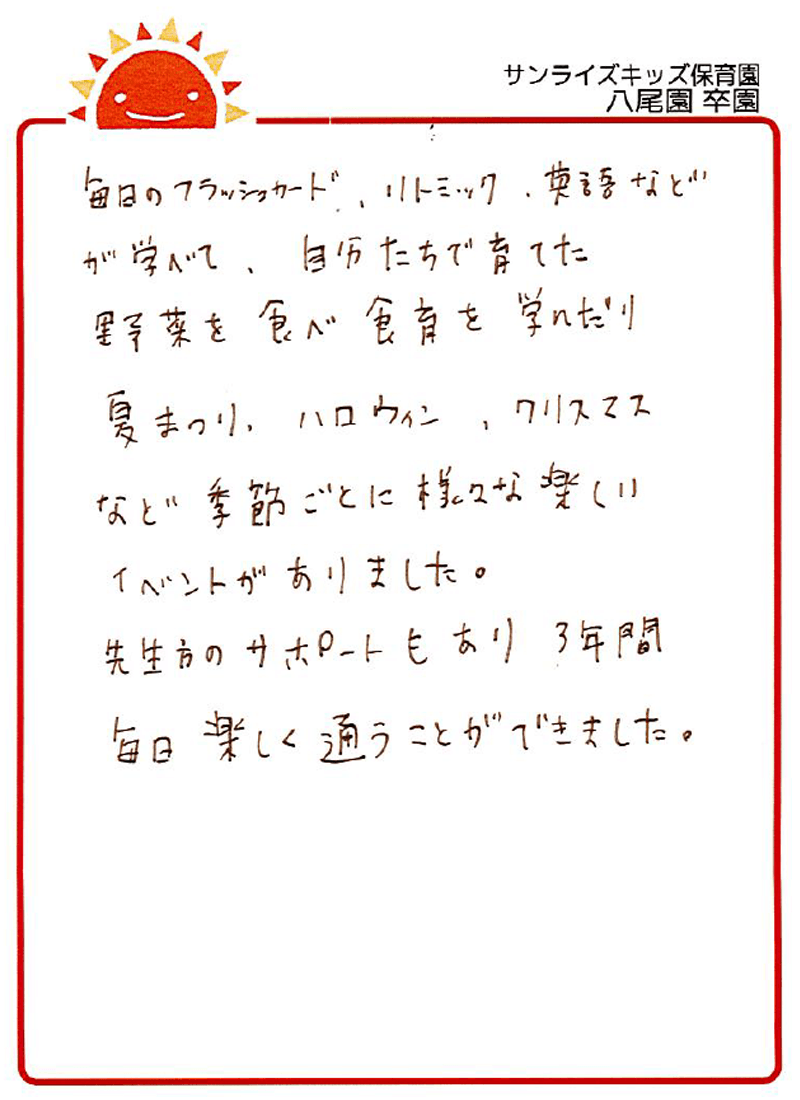 サンライズキッズ保育園
八尾園 卒園
毎日のフラッシュカード、リトミック、英語など
が学べて、自分たちで育てた
野菜を食べ食育を学んだり
夏まつり、ハロウィン、クリスマス
など季節ごとに様々な楽しい
イベントがありました。
先生方のサポートもあり3年間
毎日楽しく通うことができました。